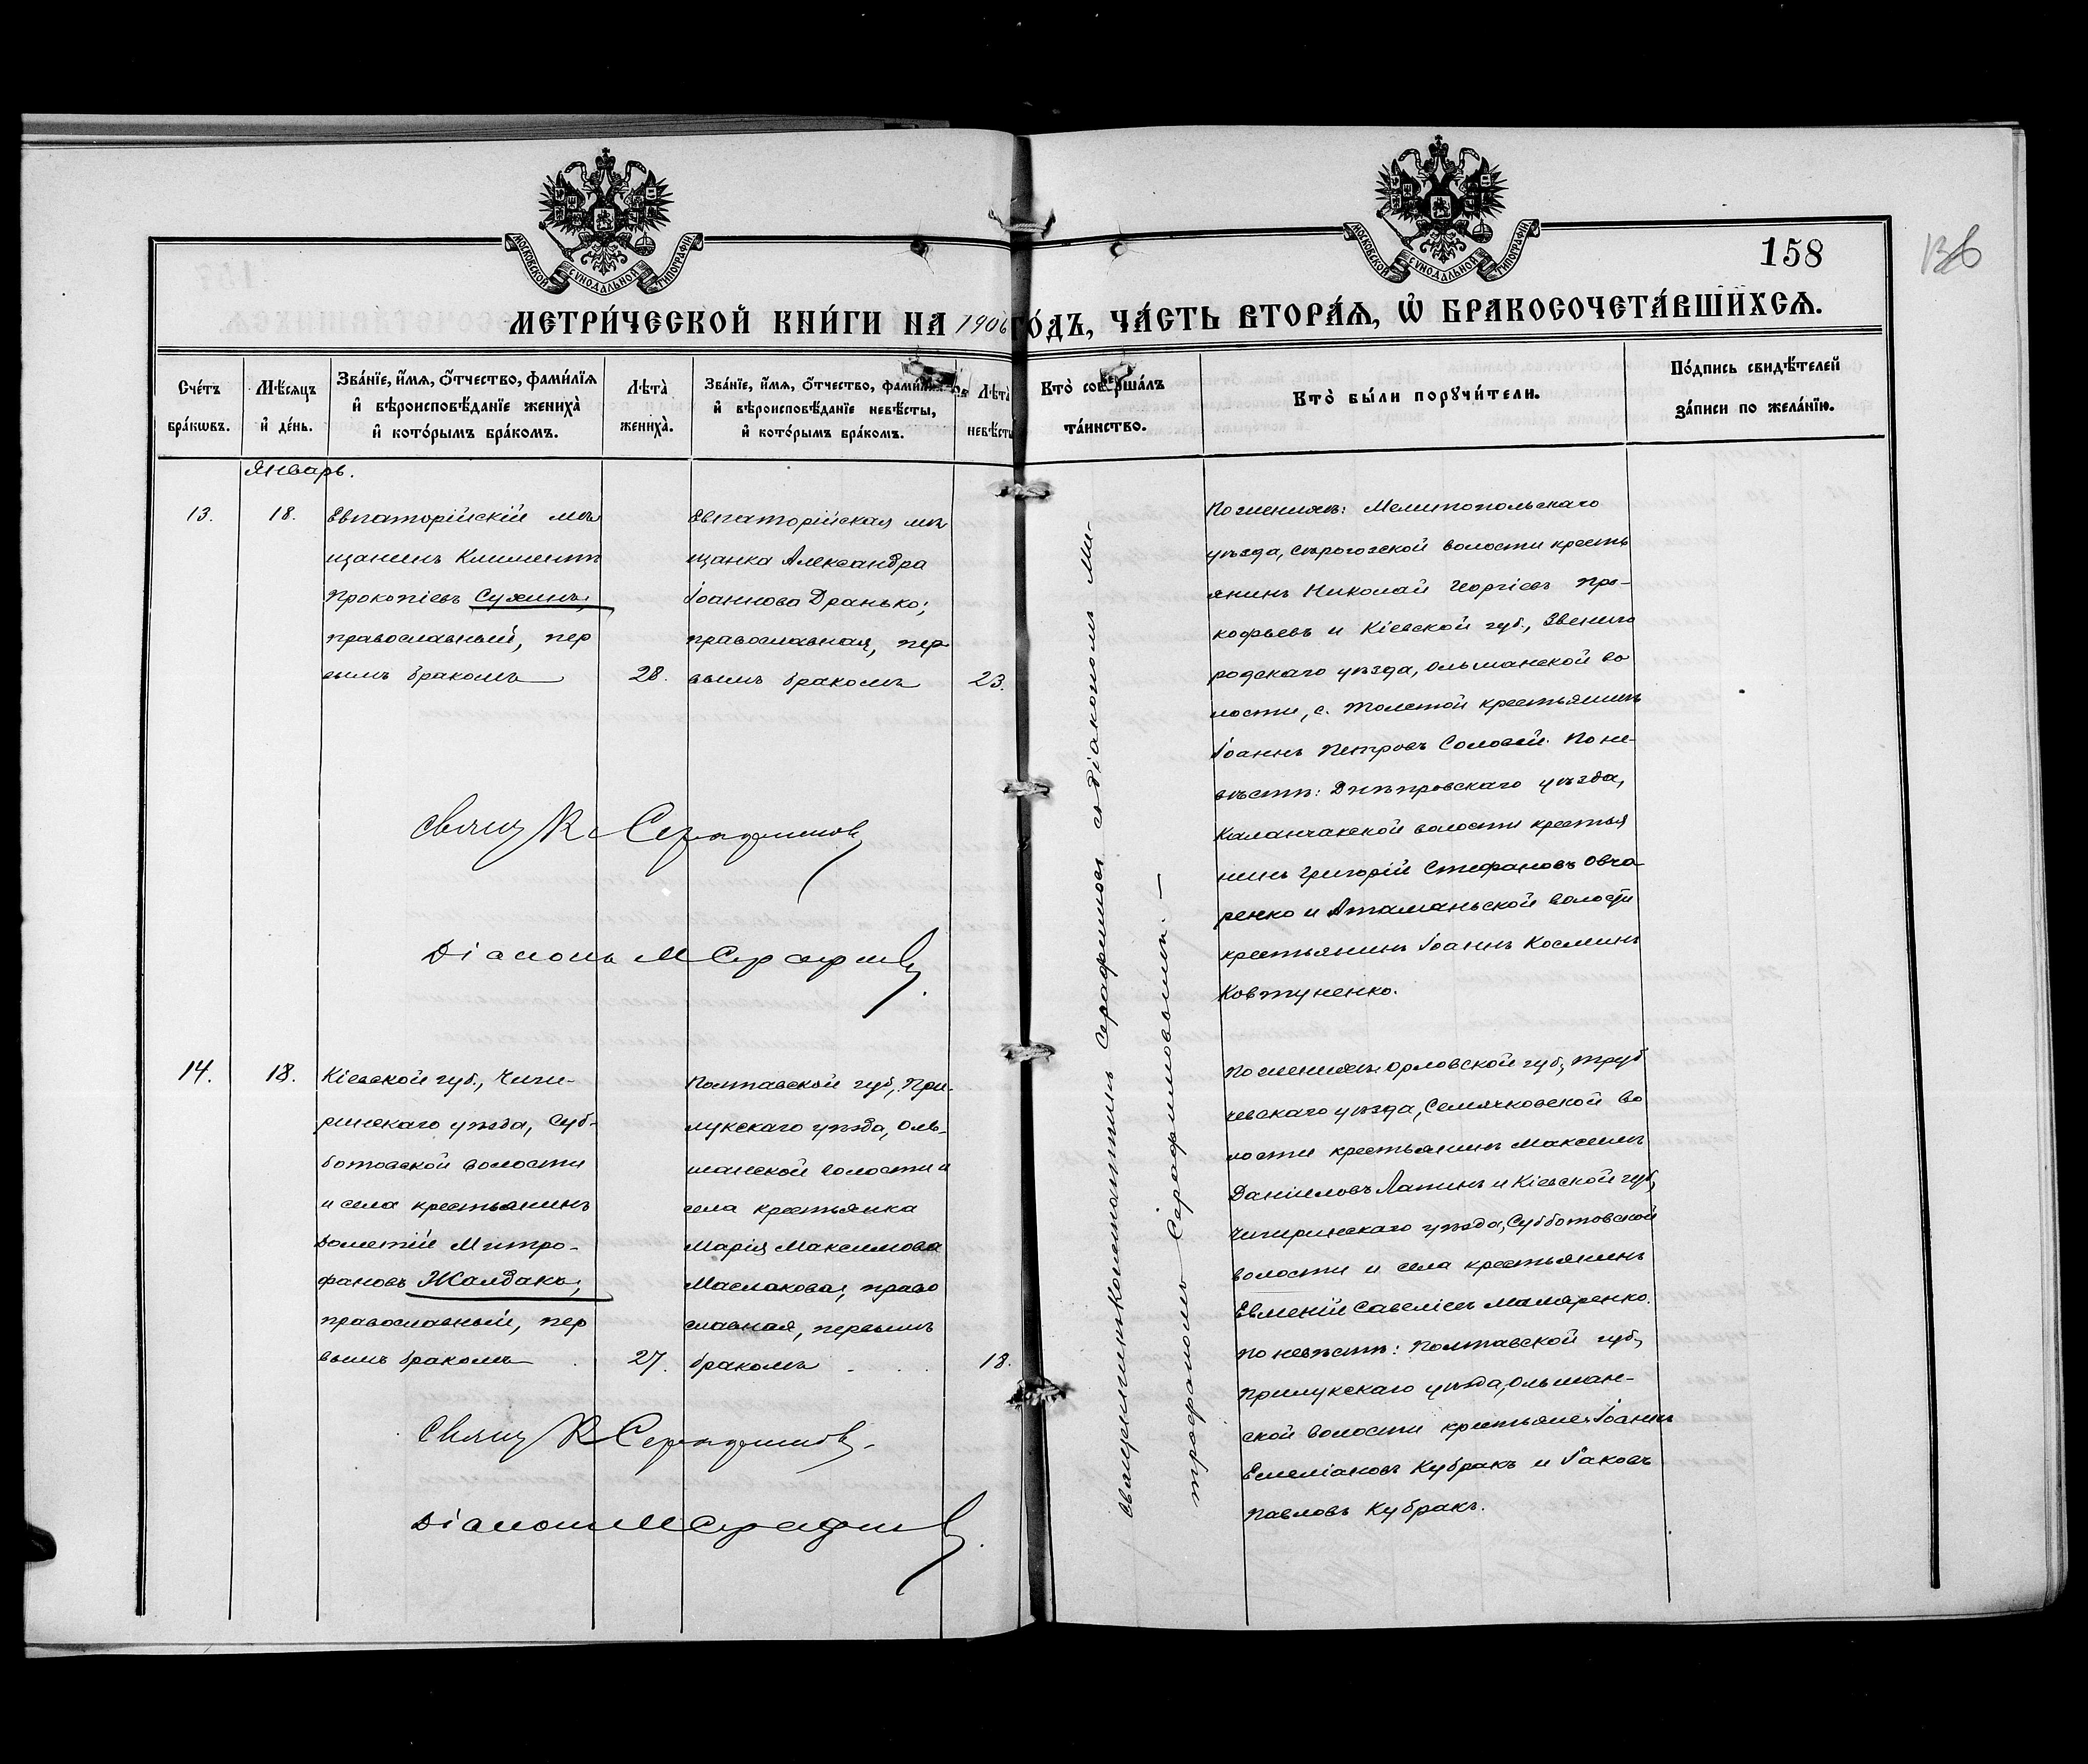 МОСКОВСКОЙ СУНОДАЛЬНОЙ ТИПОГРАФІИ
МОСКОВСКОЙ СУНОДАЛЬНОЙ ТИПОГРАФІИ
158
МЕТРИ́ЧЕСКОЙ КНИ́ГИ НА 1906 ГО́ДЪ, ЧА́СТЬ ВТОРА́Ѧ, Ѡ҆ БРАКОСОЧЕТА́ВШИХСѦ.
Сче́тъ бра́кѡвъ.
Мѣ́сѧцъ и҆ де́нь.
Зва́нїе, и҆́мѧ, ѻ҆́тчество, фами́лїѧ
и҆ вѣроисповѣ́данїе жениха̀
и҆ кото́рымъ бра́комъ.
Лѣта̀ жениха̀.
Зва́нїе, и҆́мѧ, ѻ҆́тчество, фами́лїѧ
и҆ вѣроисповѣ́данїе невѣ́сты,
и҆ кото́рымъ бра́комъ.
Лѣта̀ невѣ́сты
Кто̀ соверша́лъ та́инство.
Кто̀ бы́ли порꙋчи́тели.
По́дпись свидѣ́телей
за́писи по жела́нїю.
Январь.
13.
18.
Евпаторійскій мѣ
щанинъ Климентъ
Прокопіевъ Сухинъ,
православный, пер
вымъ бракомъ
28.
Евпаторійская мѣ
щанка Александра
Іоаннова Дранько;
православная, пер
вымъ бракомъ
23.
Священникъ Константинъ Серафимовъ съ діакономъ Ми-
трофаномъ Серафимовымъ. —
По женихѣ: Мелитопольскаго
уѣзда, Сѣрогозской волости кресть
янинъ Николай Георгіевъ Про-
кофьевъ и Кіевской губ., Звениго
родскаго уѣзда, Ольшанской во
лости, с. Толстой крестьянинъ
Іоаннъ Петровъ Соловей. По не-
вѣстѣ: Днѣпровскаго уѣзда,
Каланчакской волости крестья
нинъ Григорій Стефановъ Овча
ренко и Атаманьской волости
крестьянинъ Іоаннъ Косминъ
Ковтуненко.
Свящ К Серафимовъ
Діаконъ М Серафимовъ.
14.
18.
Кіевской губ., Чиги-
ринскаго уѣзда, Суб-
ботовской волости
и села крестьянинъ
Дометій Митро-
фановъ Жалдакъ,
православный, пер
вымъ бракомъ
27.
Полтавской губ., При-
лукскаго уѣзда, Оль-
шанской волости и
села крестьянка
Марія Максимова
Маслакова, право
славная, первымъ
бракомъ
18.
По женихѣ: Орловской губ., Труб
чевскаго уѣзда, Семячковской во
лости крестьянинъ Максимъ
Даніиловъ Лапинъ и Кіевской губ.,
Чигиринскаго уѣзда, Субботовской
волости и села крестьянинъ
Евменій Савеліевъ Маляренко.
По невѣстѣ: Полтавской губ.,
Прилукскаго уѣзда, Ольшан-
ской волости крестьяне: Іоаннъ
Емеліановъ Кубракъ и Іаковъ
Павловъ Кубракъ.
Свящ К Серафимовъ.
Діаконъ М Серафимовъ.